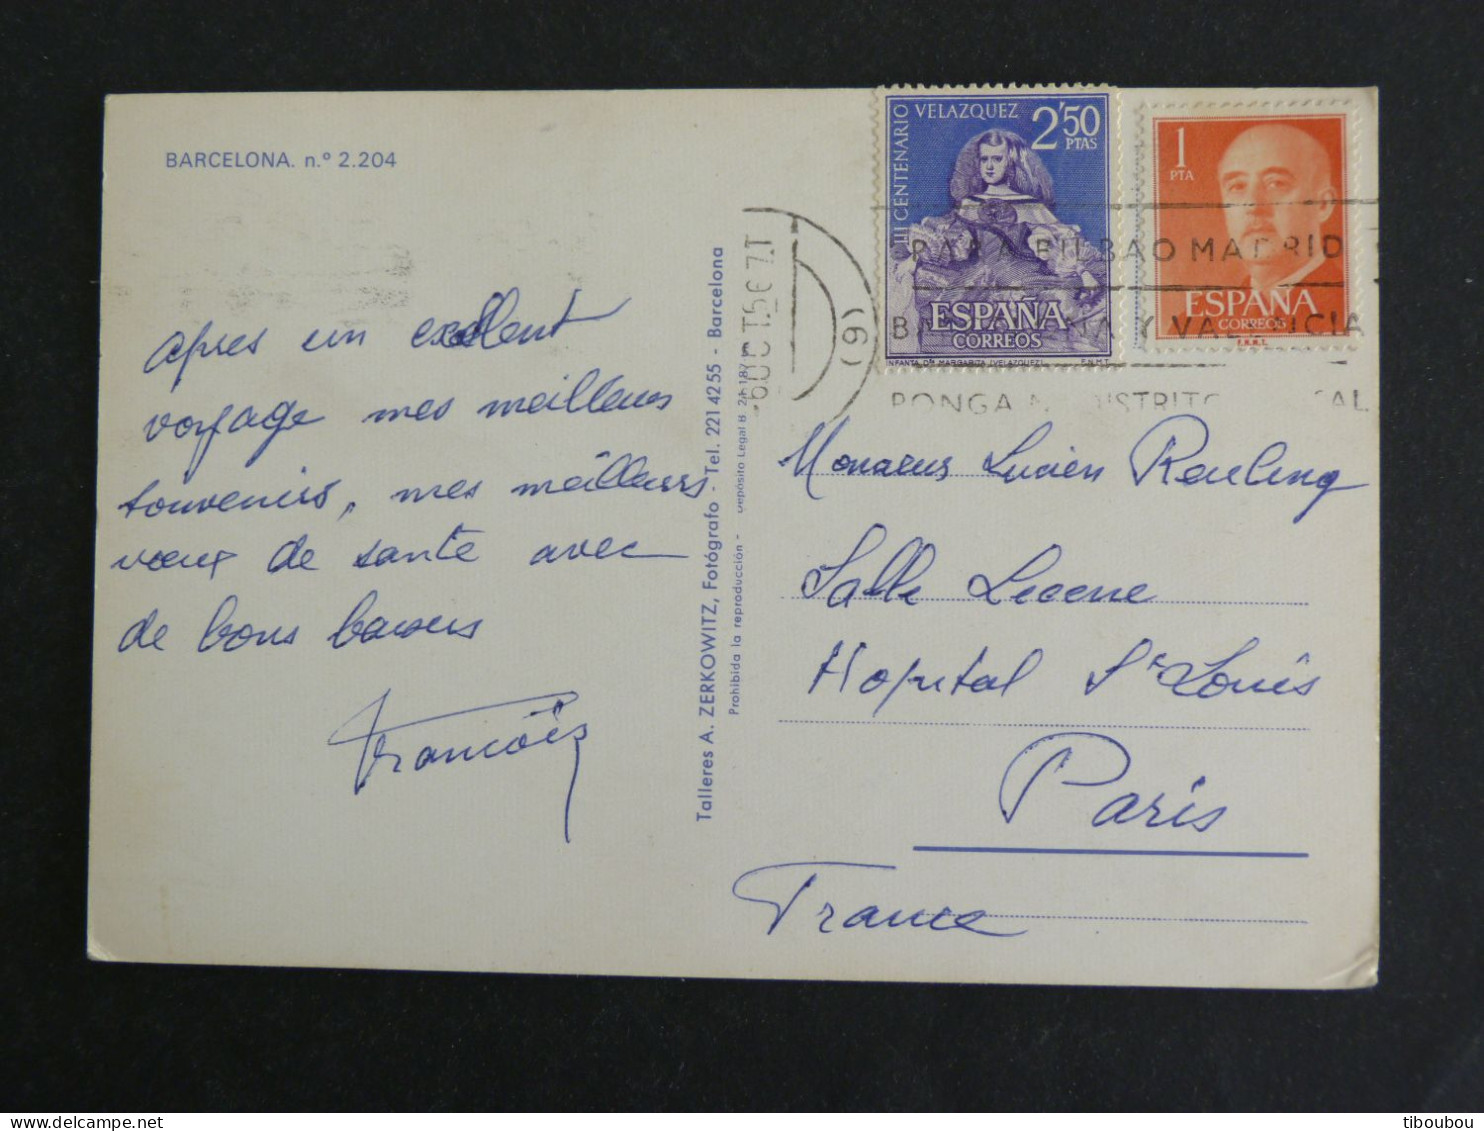 BARCELONA. n.º 2.204
apres un excellent
voyage mes meilleurs
souvenirs, mes meilleurs
vœux de sante avec
de bons baisers
François
Talleres A. ZERKOWITZ, Fotógrafo - Tel. 221 4255 - Barcelona
Prohibida la reproducción - Depósito Legal B.
III CENTENARIO VELAZQUEZ
2'50
PTAS
ESPAÑA
CORREOS
INFANTA Dña MARGARITA (VELAZQUEZ) F.N.M.T.
1
PTA
ESPAÑA
CORREOS
F.N.M.T.
(6)
PARA BILBAO MADRID
Y VALENCIA
PONGA
Lucien Reuling
Salle
Hopital St Louis
Paris
France
tiboubou